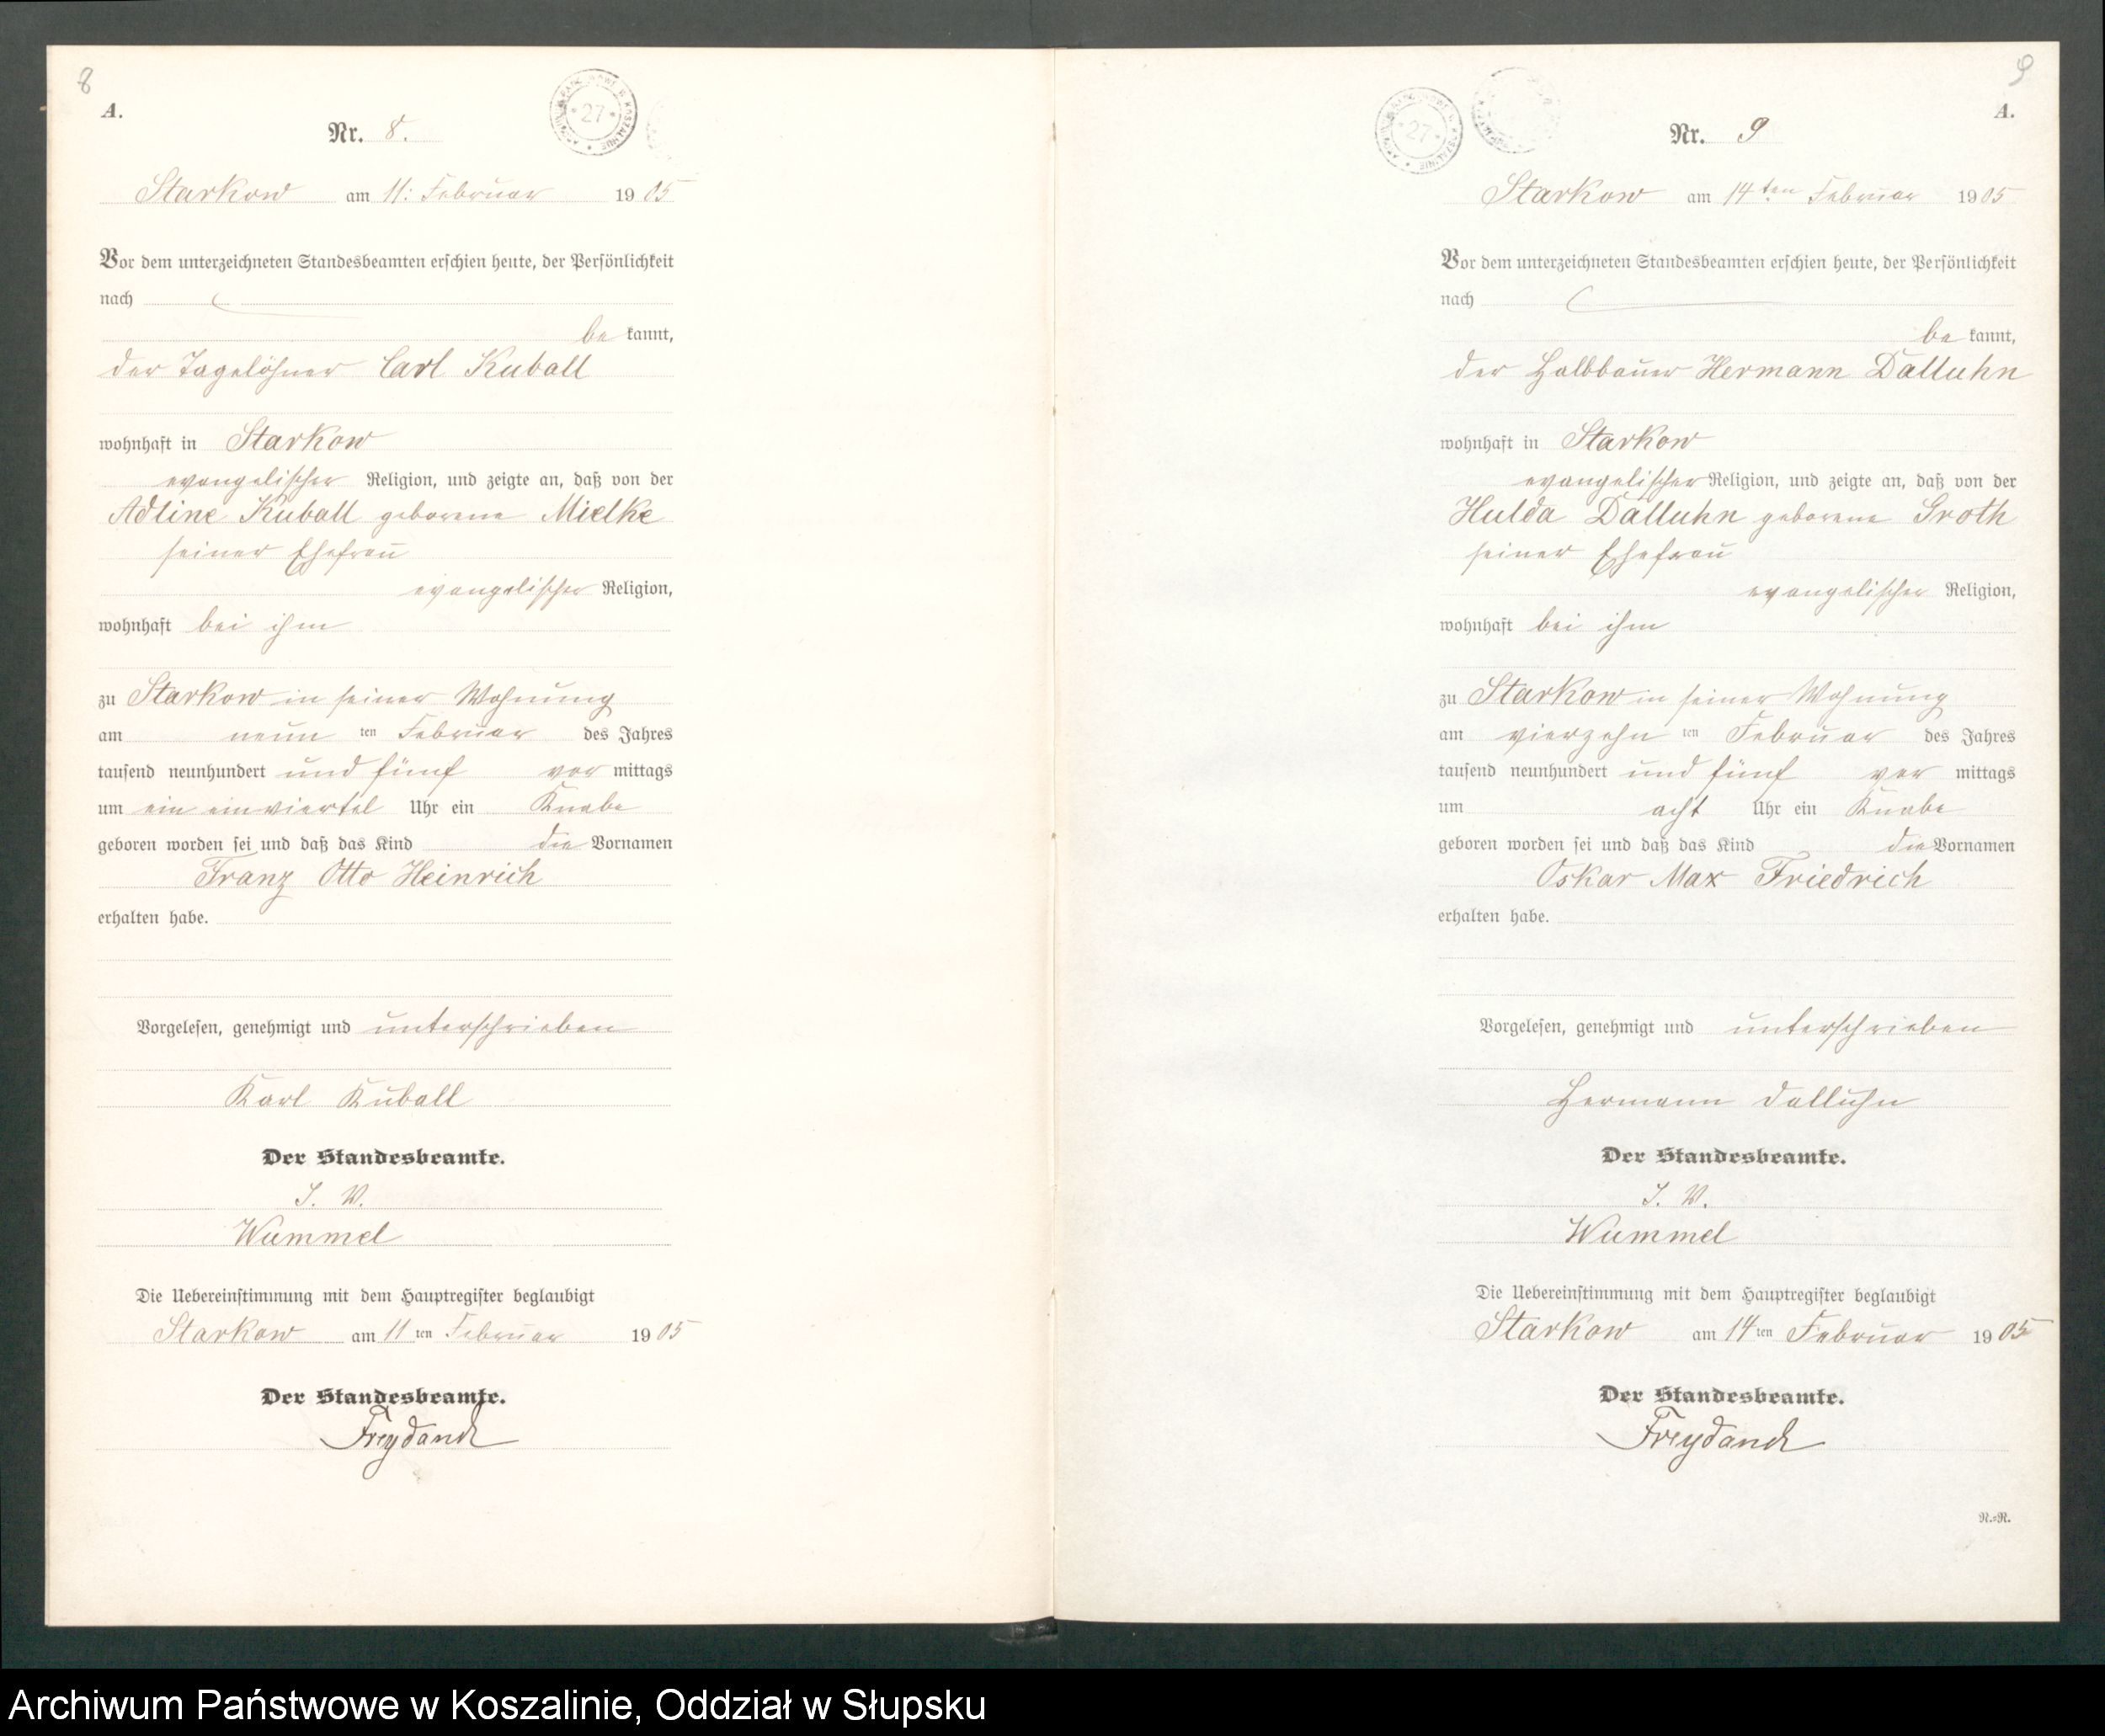 8
A.
Nr. 8.
27
Starkow am 11: Februar 1905
Vor dem unterzeichneten Standesbeamten erschien heute, der Persönlichkeit
nach
be kannt,
der Tagelöhner Carl Kuball
wohnhaft in Starkow
evangelischer Religion, und zeigte an, daß von der
Adline Kuball geborene Mielke
seiner Ehefrau
evangelischer Religion,
wohnhaft bei ihm
zu Starkow in seiner Wohnung
am neun ten Februar des Jahres
tausend neunhundert und fünf vor mittags
um ein einviertel Uhr ein Knabe
geboren worden sei und daß das Kind die Vornamen
Franz Otto Heinrich
erhalten habe.
Vorgelesen, genehmigt und unterschrieben
Karl Kuball
Der Standesbeamte.
I. V.
Wummel
Die Uebereinstimmung mit dem Hauptregister beglaubigt
Starkow am 11 ten Februar 1905
Der Standesbeamte.
Freydanck
9
A.
Nr. 9
27
Starkow am 14ten Februar 1905
Vor dem unterzeichneten Standesbeamten erschien heute, der Persönlichkeit
nach
be kannt,
der Halbbauer Hermann Dalluhn
wohnhaft in Starkow
evangelischer Religion, und zeigte an, daß von der
Hulda Dalluhn geborene Groth
seiner Ehefrau
evangelischer Religion,
wohnhaft bei ihm
zu Starkow in seiner Wohnung
am vierzehn ten Februar des Jahres
tausend neunhundert und fünf vor mittags
um acht Uhr ein Knabe
geboren worden sei und daß das Kind die Vornamen
Oskar Max Friedrich
erhalten habe.
Vorgelesen, genehmigt und unterschrieben
Hermann Dalluhn
Der Standesbeamte.
I. V.
Wummel
Die Uebereinstimmung mit dem Hauptregister beglaubigt
Starkow am 14 ten Februar 1905
Der Standesbeamte.
Freydanck
N.=R.
Archiwum Państwowe w Koszalinie, Oddział w Słupsku